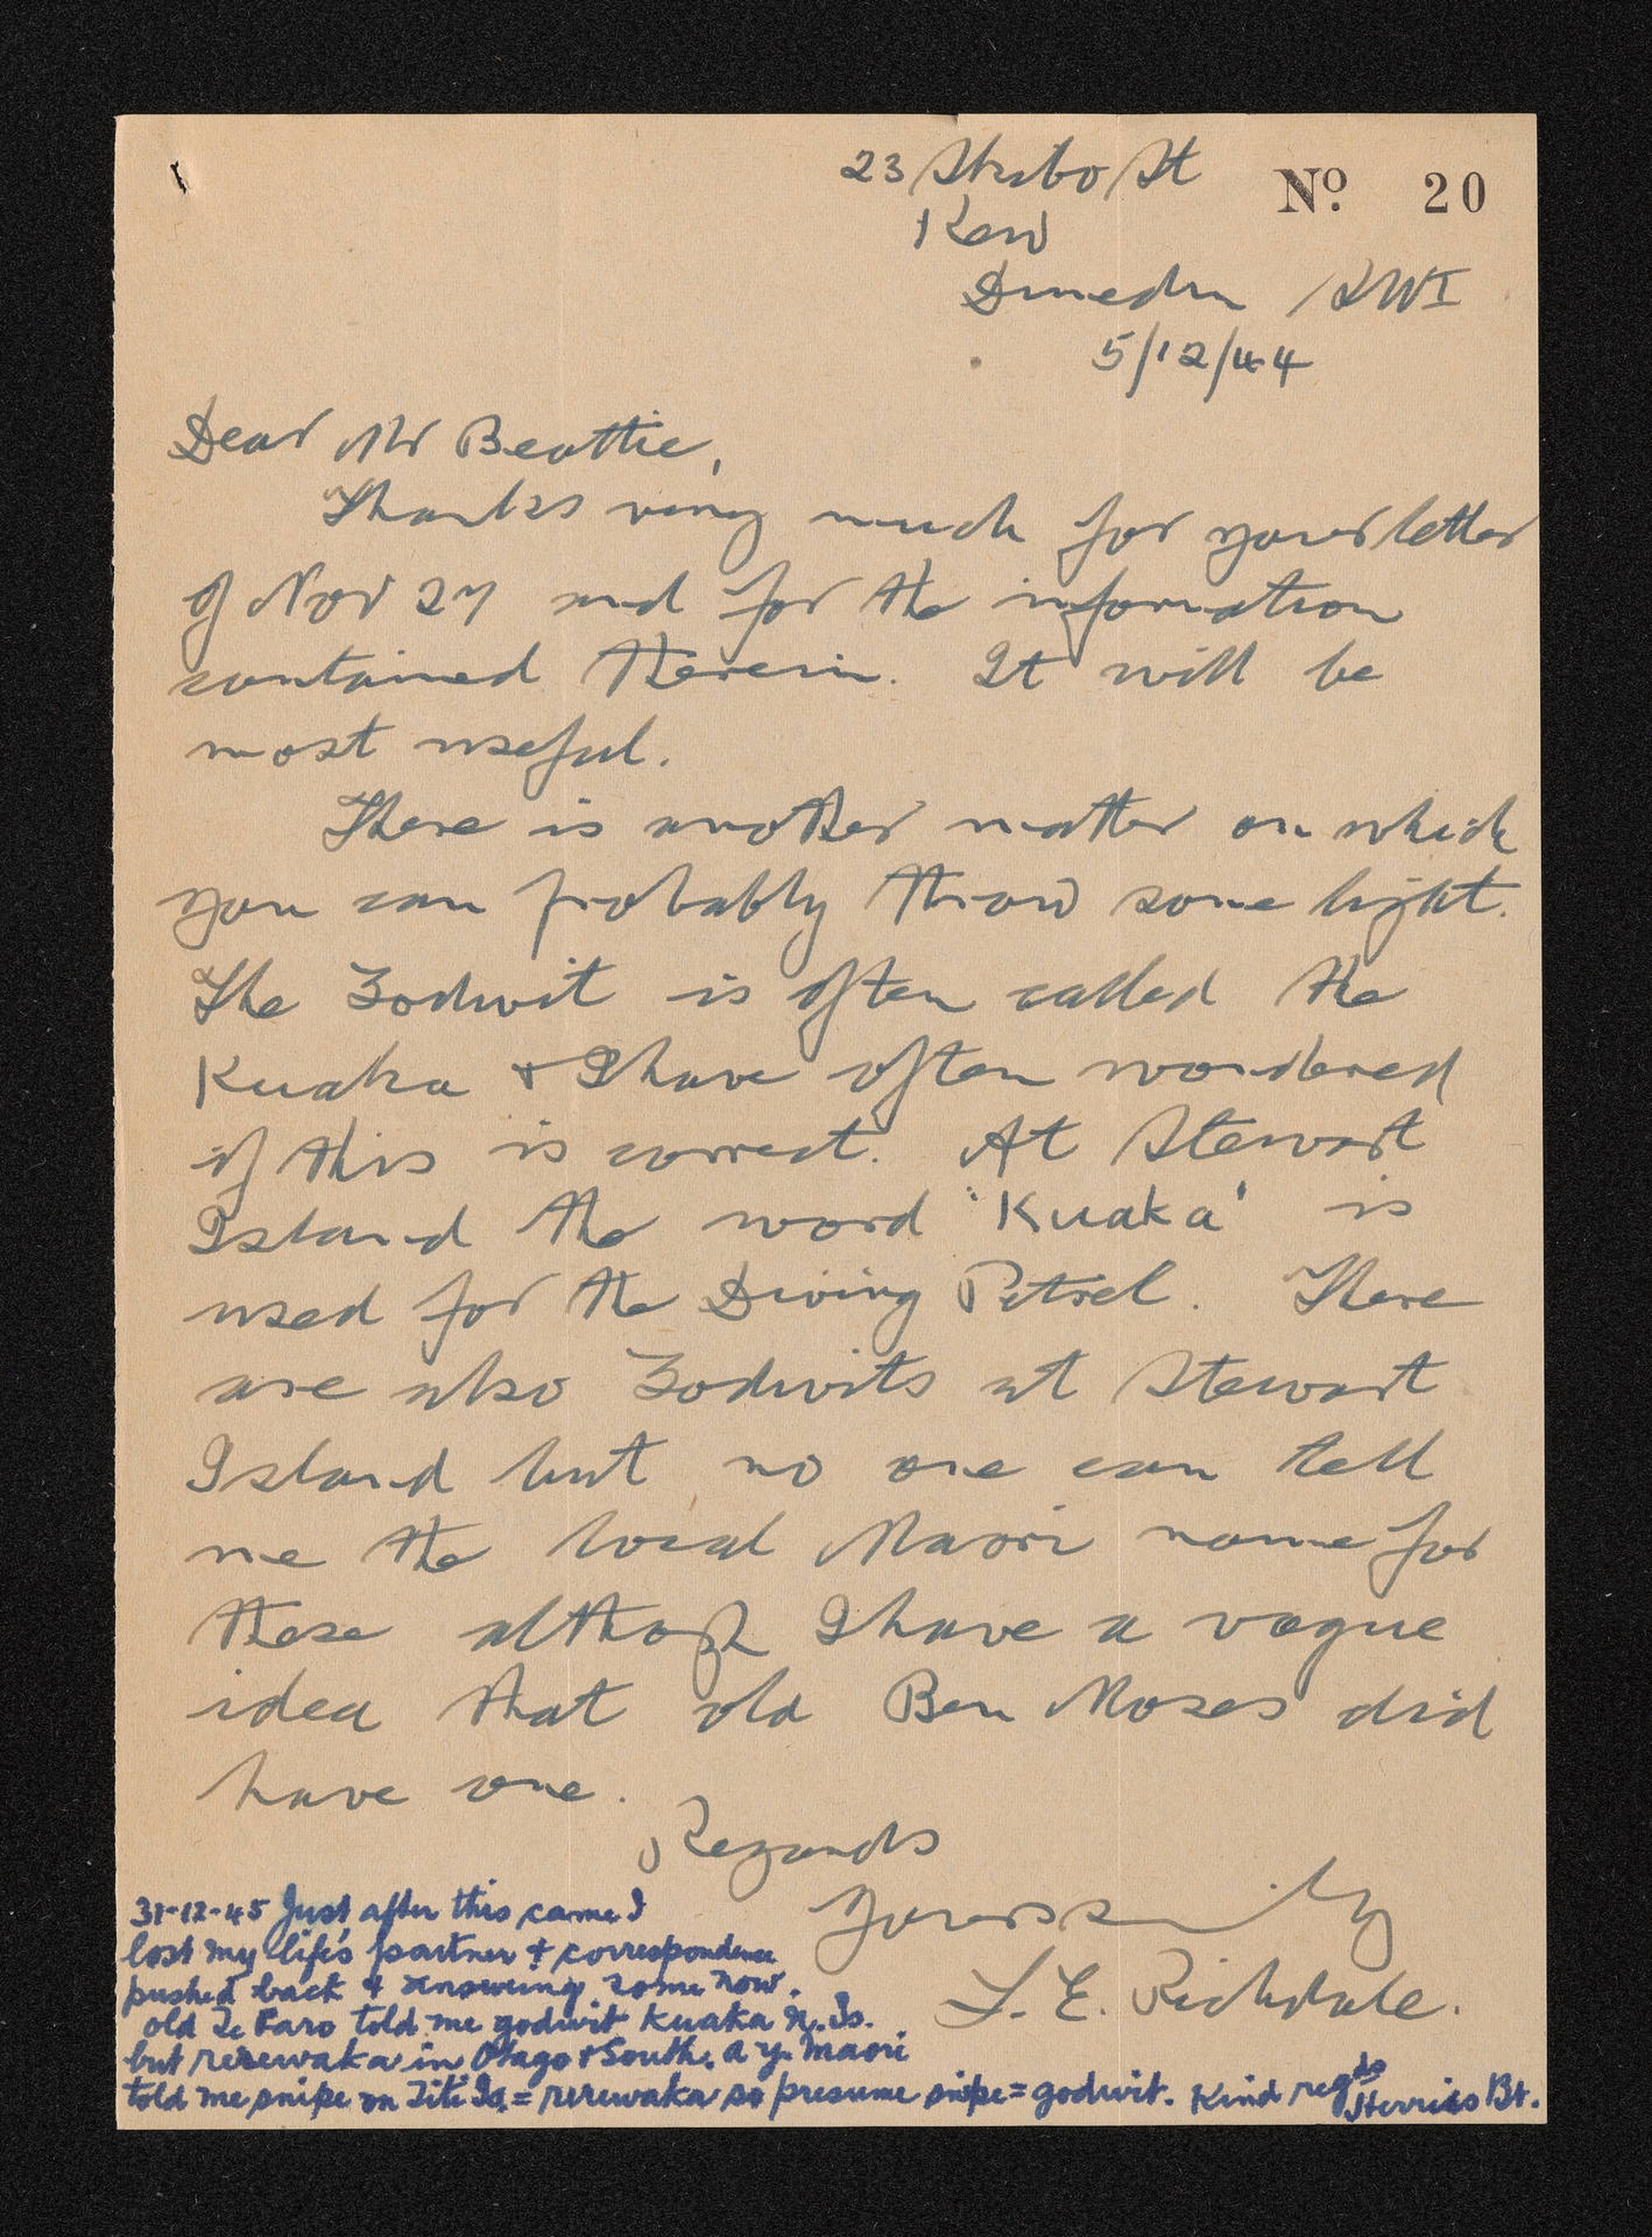 23 Skibo St
Nº 20
Kew
Dunedin SW1
5/12/44
Dear Mr Beattie,
Thanks very much for your letter
of Nov 27 and for the information
contained therein. It will be
most useful.
There is another matter on which
you can probably throw some light.
The Godwit is often called the
Kuaka & I have often wondered
if this is correct. At Stewart
Island the word 'Kuaka' is
used for the Diving Petrel. There
are also Godwits at Stewart
Island but no one can tell
me the local Maori name for
these although I have a vague
idea that old Ben Moses did
have one.
Regards
Yours
L. E. Richdale.
31-12-45 Just after this came I
lost my life's partner & correspondence
pushed back & answering some now.
old Te Faro told me godwit Kuaka N. Is.
but rerewaka in Otago & South. a y. Maori
told me snipe on Titi Is. = rerewaka so presume snipe = godwit. Kind regds
Herries Bt.